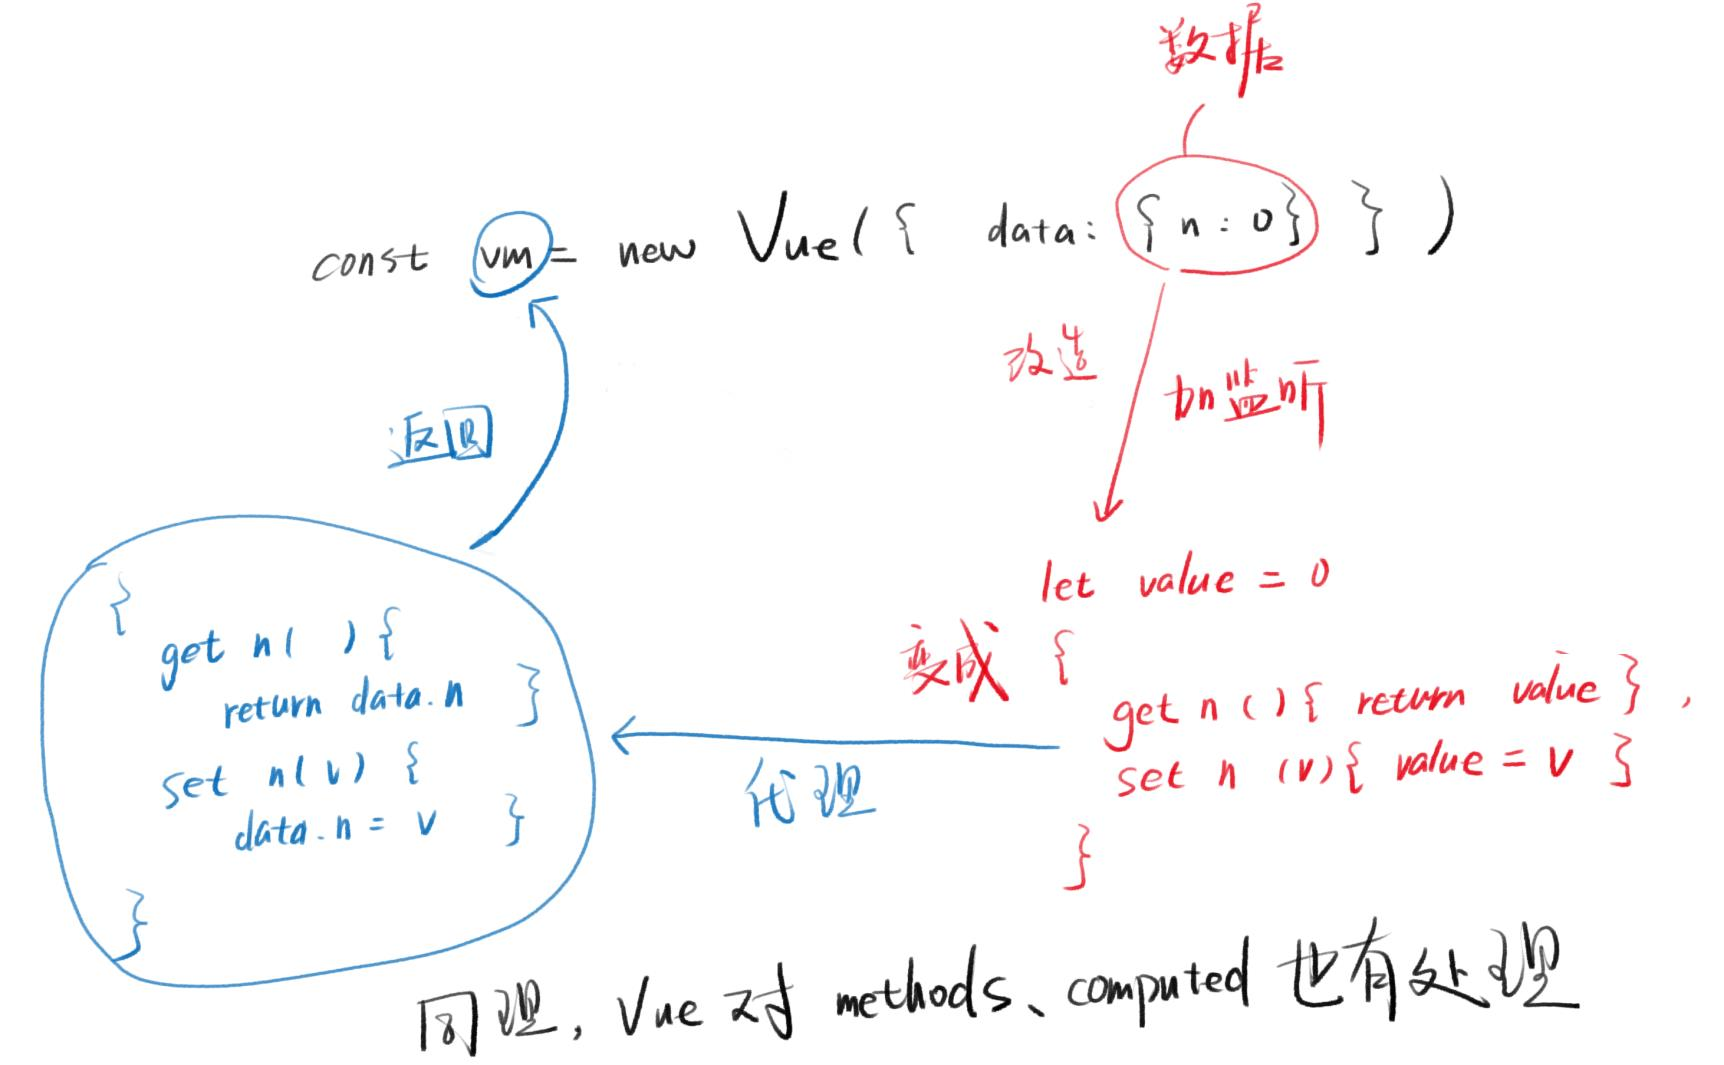 数据
const vm = new Vue({ data: {n:0} })
改造
加监听
返回
let value = 0
变成
{
get n(){ return value },
set n(v){ value = v }
}
代理
{
get n( ){
return data.n }
set n(v) {
data.n = v }
}
同理, Vue 对 methods、computed 也有处理